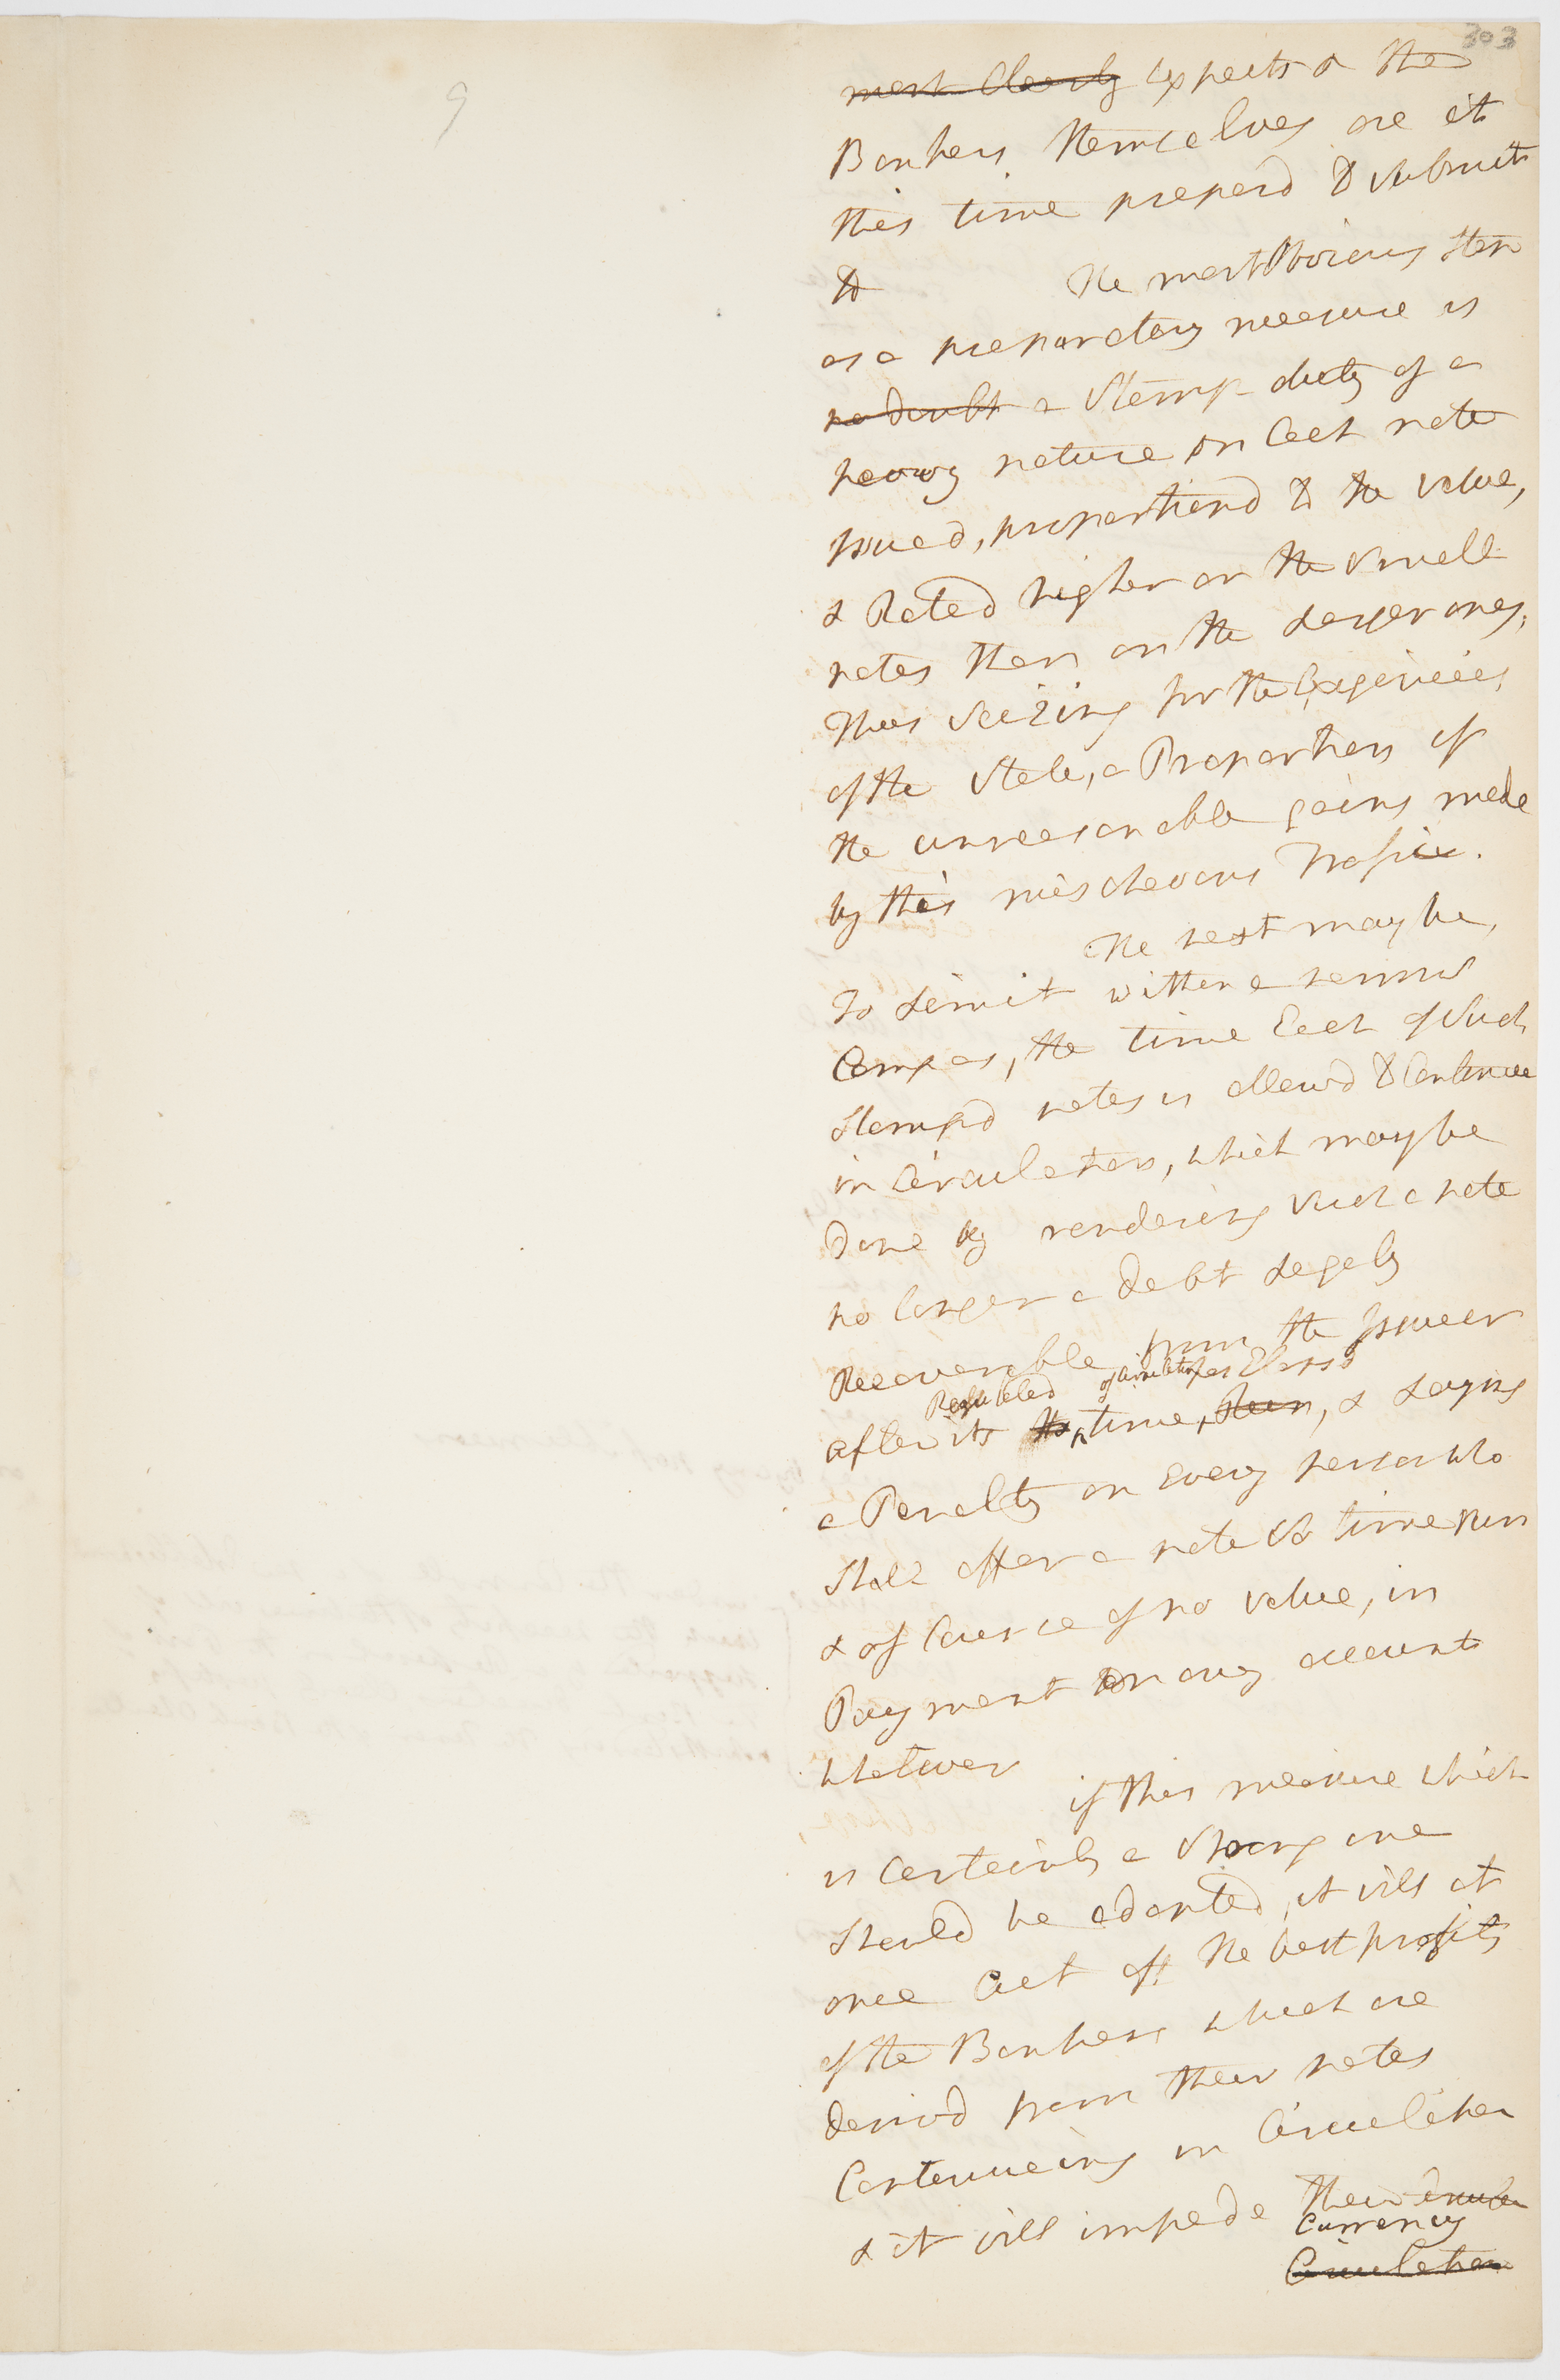 303
9
most clearly expects & the
Bankers themselves are at
this time prepard to submit
to The most Obvious Step
as a preparatory measure is
no doubt a Stamp duty of a
heavy nature on Each note
Issued, proportiond to the value,
& Rated higher on the Small
notes than on the Larger ones,
Thus Seizing for the Exigencies
of the State, a Proportion of
the unreasonable gains made
by this mischevous Trafic.
The next may be,
To Limit within a narrow
Compas, the time Each of Such
Stampd notes is allowd to Continue
in Circulation, which may be
Done by rendering Such a note
no longer a debt Legaly
Recoverable from the Issueer
Regulated of circulation has Elapsd
after its the time, been, & Laying
a Penalty on Every person who
Shall offer a note So time run
& of Course of no value, in
Payment on any account
whatever
if this measure which
is Certainly a Strong one
Should be adopted, it will at
once Cut off the best profits
of the Bankers which are
derivd from their notes
Contenueing in Circulation
& it will impede their
Currency
Circulation